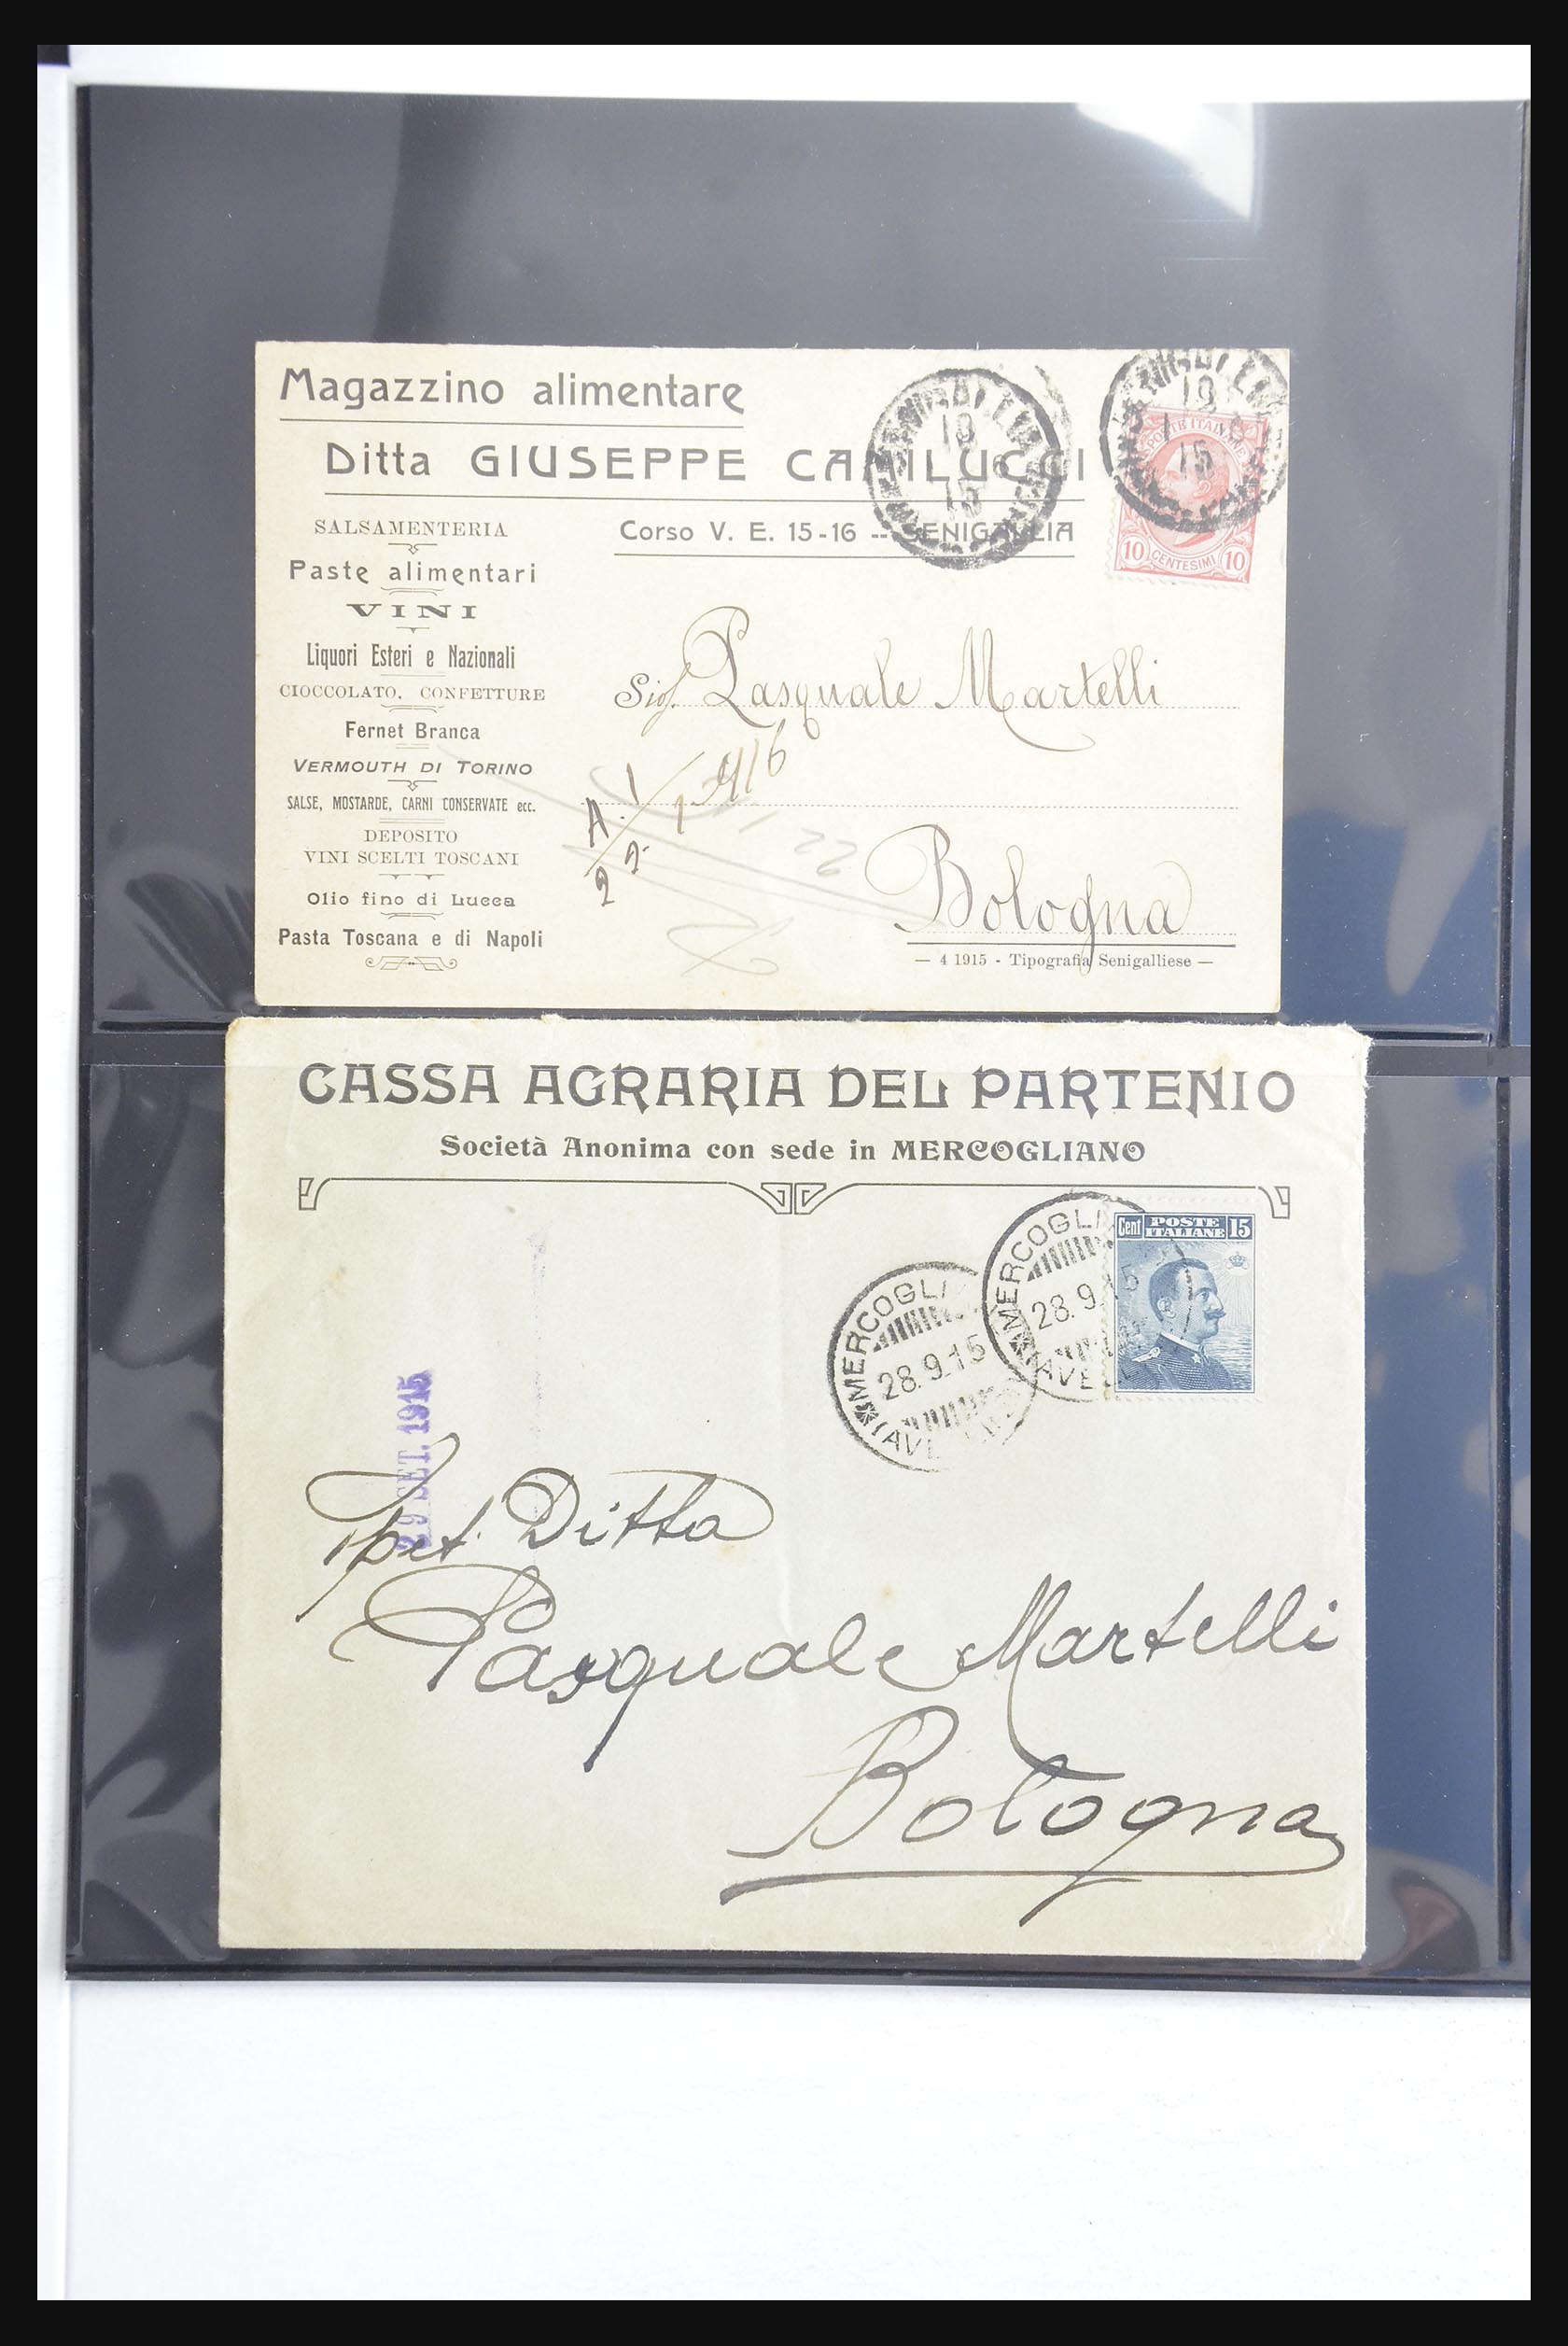 Magazzino alimentare
Ditta GIUSEPPE CAMILUCCI
Corso V. E. 15-16 -- SENIGALLIA
SALSAMENTERIA
Paste alimentari
VINI
Liquori Esteri e Nazionali
CIOCCOLATO, CONFETTURE
Fernet Branca
VERMOUTH DI TORINO
SALSE, MOSTARDE, CARNI CONSERVATE ecc.
DEPOSITO
VINI SCELTI TOSCANI
Olio fino di Lucca
Pasta Toscana e di Napoli
POSTE ITALIANE
10 CENTESIMI 10
Sig. Pasquale Martelli
Bologna
— 4 1915 - Tipografia Senigalliese —
CASSA AGRARIA DEL PARTENIO
Società Anonima con sede in MERCOGLIANO
Cent POSTE ITALIANE 15
MERCOGLI
28.9.15
(AVE
MERCOGLI
28.9.15
(AVE
29 SET. 1915
Spet. Ditta
Pasquale Martelli
Bologna